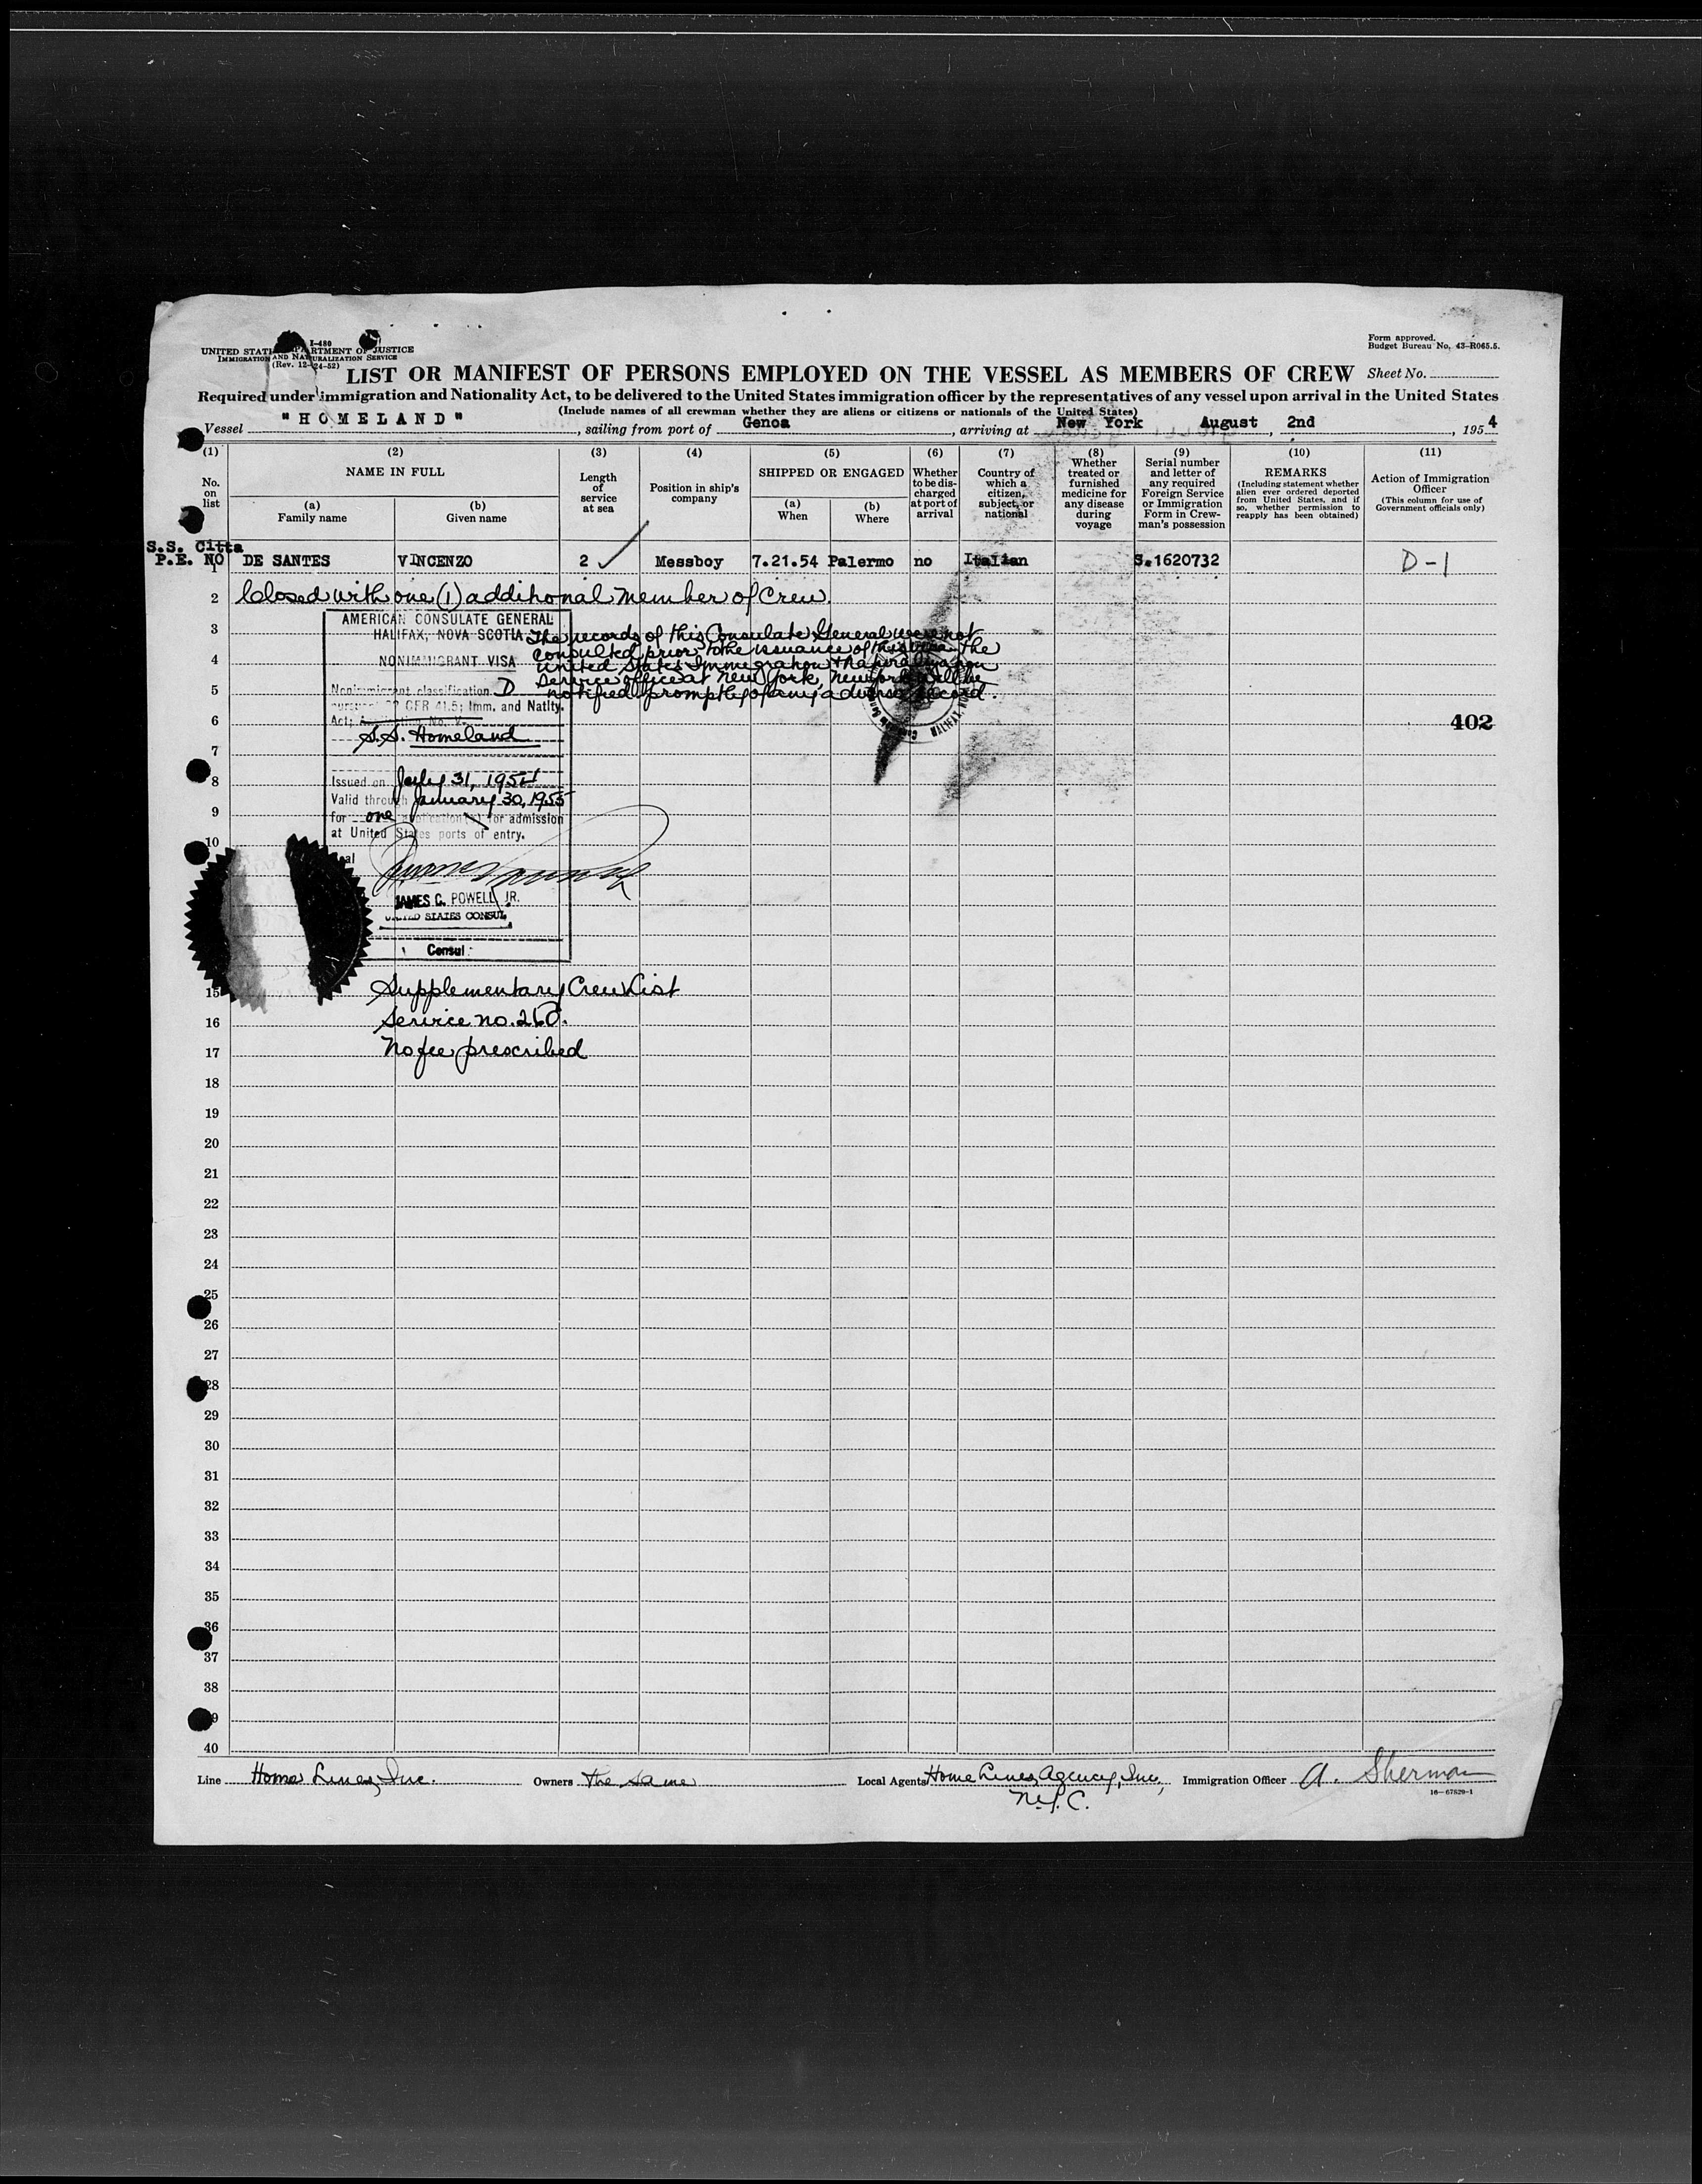 I-480
UNITED STATES DEPARTMENT OF JUSTICE
IMMIGRATION AND NATURALIZATION SERVICE
(Rev. 12-24-52)
Form approved.
Budget Bureau No. 43-R065.5.
LIST OR MANIFEST OF PERSONS EMPLOYED ON THE VESSEL AS MEMBERS OF CREW Sheet No.
Required under immigration and Nationality Act, to be delivered to the United States immigration officer by the representatives of any vessel upon arrival in the United States
(Include names of all crewman whether they are aliens or citizens or nationals of the United States)
Vessel "HOMELAND", sailing from port of Genoa, arriving at New York August, 2nd, 1954
(1) No. on list
(2) NAME IN FULL
(a) Family name
(b) Given name
(3) Length of service at sea
(4) Position in ship's company
(5) SHIPPED OR ENGAGED
(a) When
(b) Where
(6) Whether to be discharged at port of arrival
(7) Country of which a citizen, subject, or national
(8) Whether treated or furnished medicine for any disease during voyage
(9) Serial number and letter of any required Foreign Service or Immigration Form in Crewman's possession
(10) REMARKS (Including statement whether alien ever ordered deported from United States, and if so, whether permission to reapply has been obtained)
(11) Action of Immigration Officer (This column for use of Government officials only)
S.S. Citta
P.E. NO
1 DE SANTES VINCENZO 2 ✓ Messboy 7.21.54 Palermo no Italian S.1620732 D-1
2 Closed with one (1) additional member of Crew.
3
4
5
6
7
8
9
10
AMERICAN CONSULATE GENERAL
HALIFAX, NOVA SCOTIA
NONIMMIGRANT VISA
Nonimmigrant classification D
22 CFR 41.5; Imm. and Natlty.
Act;
S.S. Homeland
Issued on July 31, 1954
Valid through January 30, 1955
for one application(s) for admission
at United States ports of entry.
JAMES C. POWELL, JR.
UNITED STATES CONSUL
Consul
The records of this Consulate General were not
consulted prior to the issuance of this visa. The
United States Immigration & Naturalization
Service office at New York, New York will be
notified promptly of any adverse record.
HALIFAX,
402
15 Supplementary Crew List
16 Service no. 260.
17 No fee prescribed
18
19
20
21
22
23
24
25
26
27
28
29
30
31
32
33
34
35
36
37
38
39
40
Line Home Lines, Inc. Owners The same Local Agents Home Lines Agency, Inc., Immigration Officer A. Sherman
N.Y.C.
16—67829-1